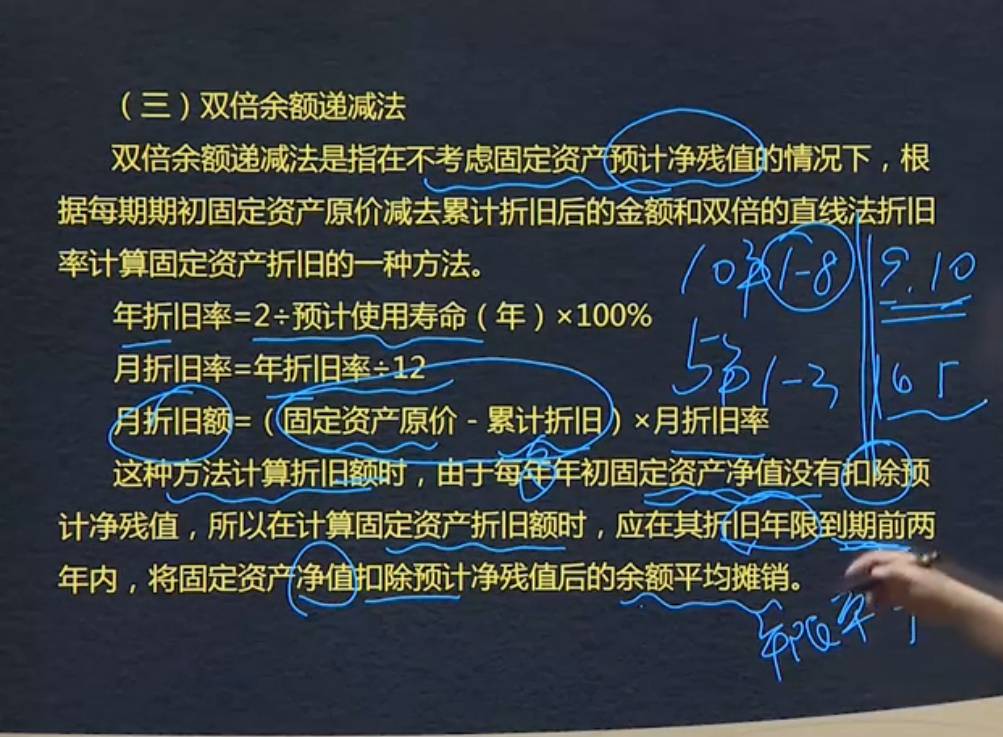 （三）双倍余额递减法
双倍余额递减法是指在不考虑固定资产预计净残值的情况下，根
据每期期初固定资产原价减去累计折旧后的金额和双倍的直线法折旧
率计算固定资产折旧的一种方法。
10年 1-8 9.10
年折旧率=2÷预计使用寿命（年）×100%
月折旧率=年折旧率÷12
1-3
月折旧额=（固定资产原价-累计折旧）×月折旧率
这种方法计算折旧额时，由于每年年初固定资产净值没有扣除预
计净残值，所以在计算固定资产折旧额时，应在其折旧年限到期前两
年内，将固定资产净值扣除预计净残值后的余额平均摊销。
年